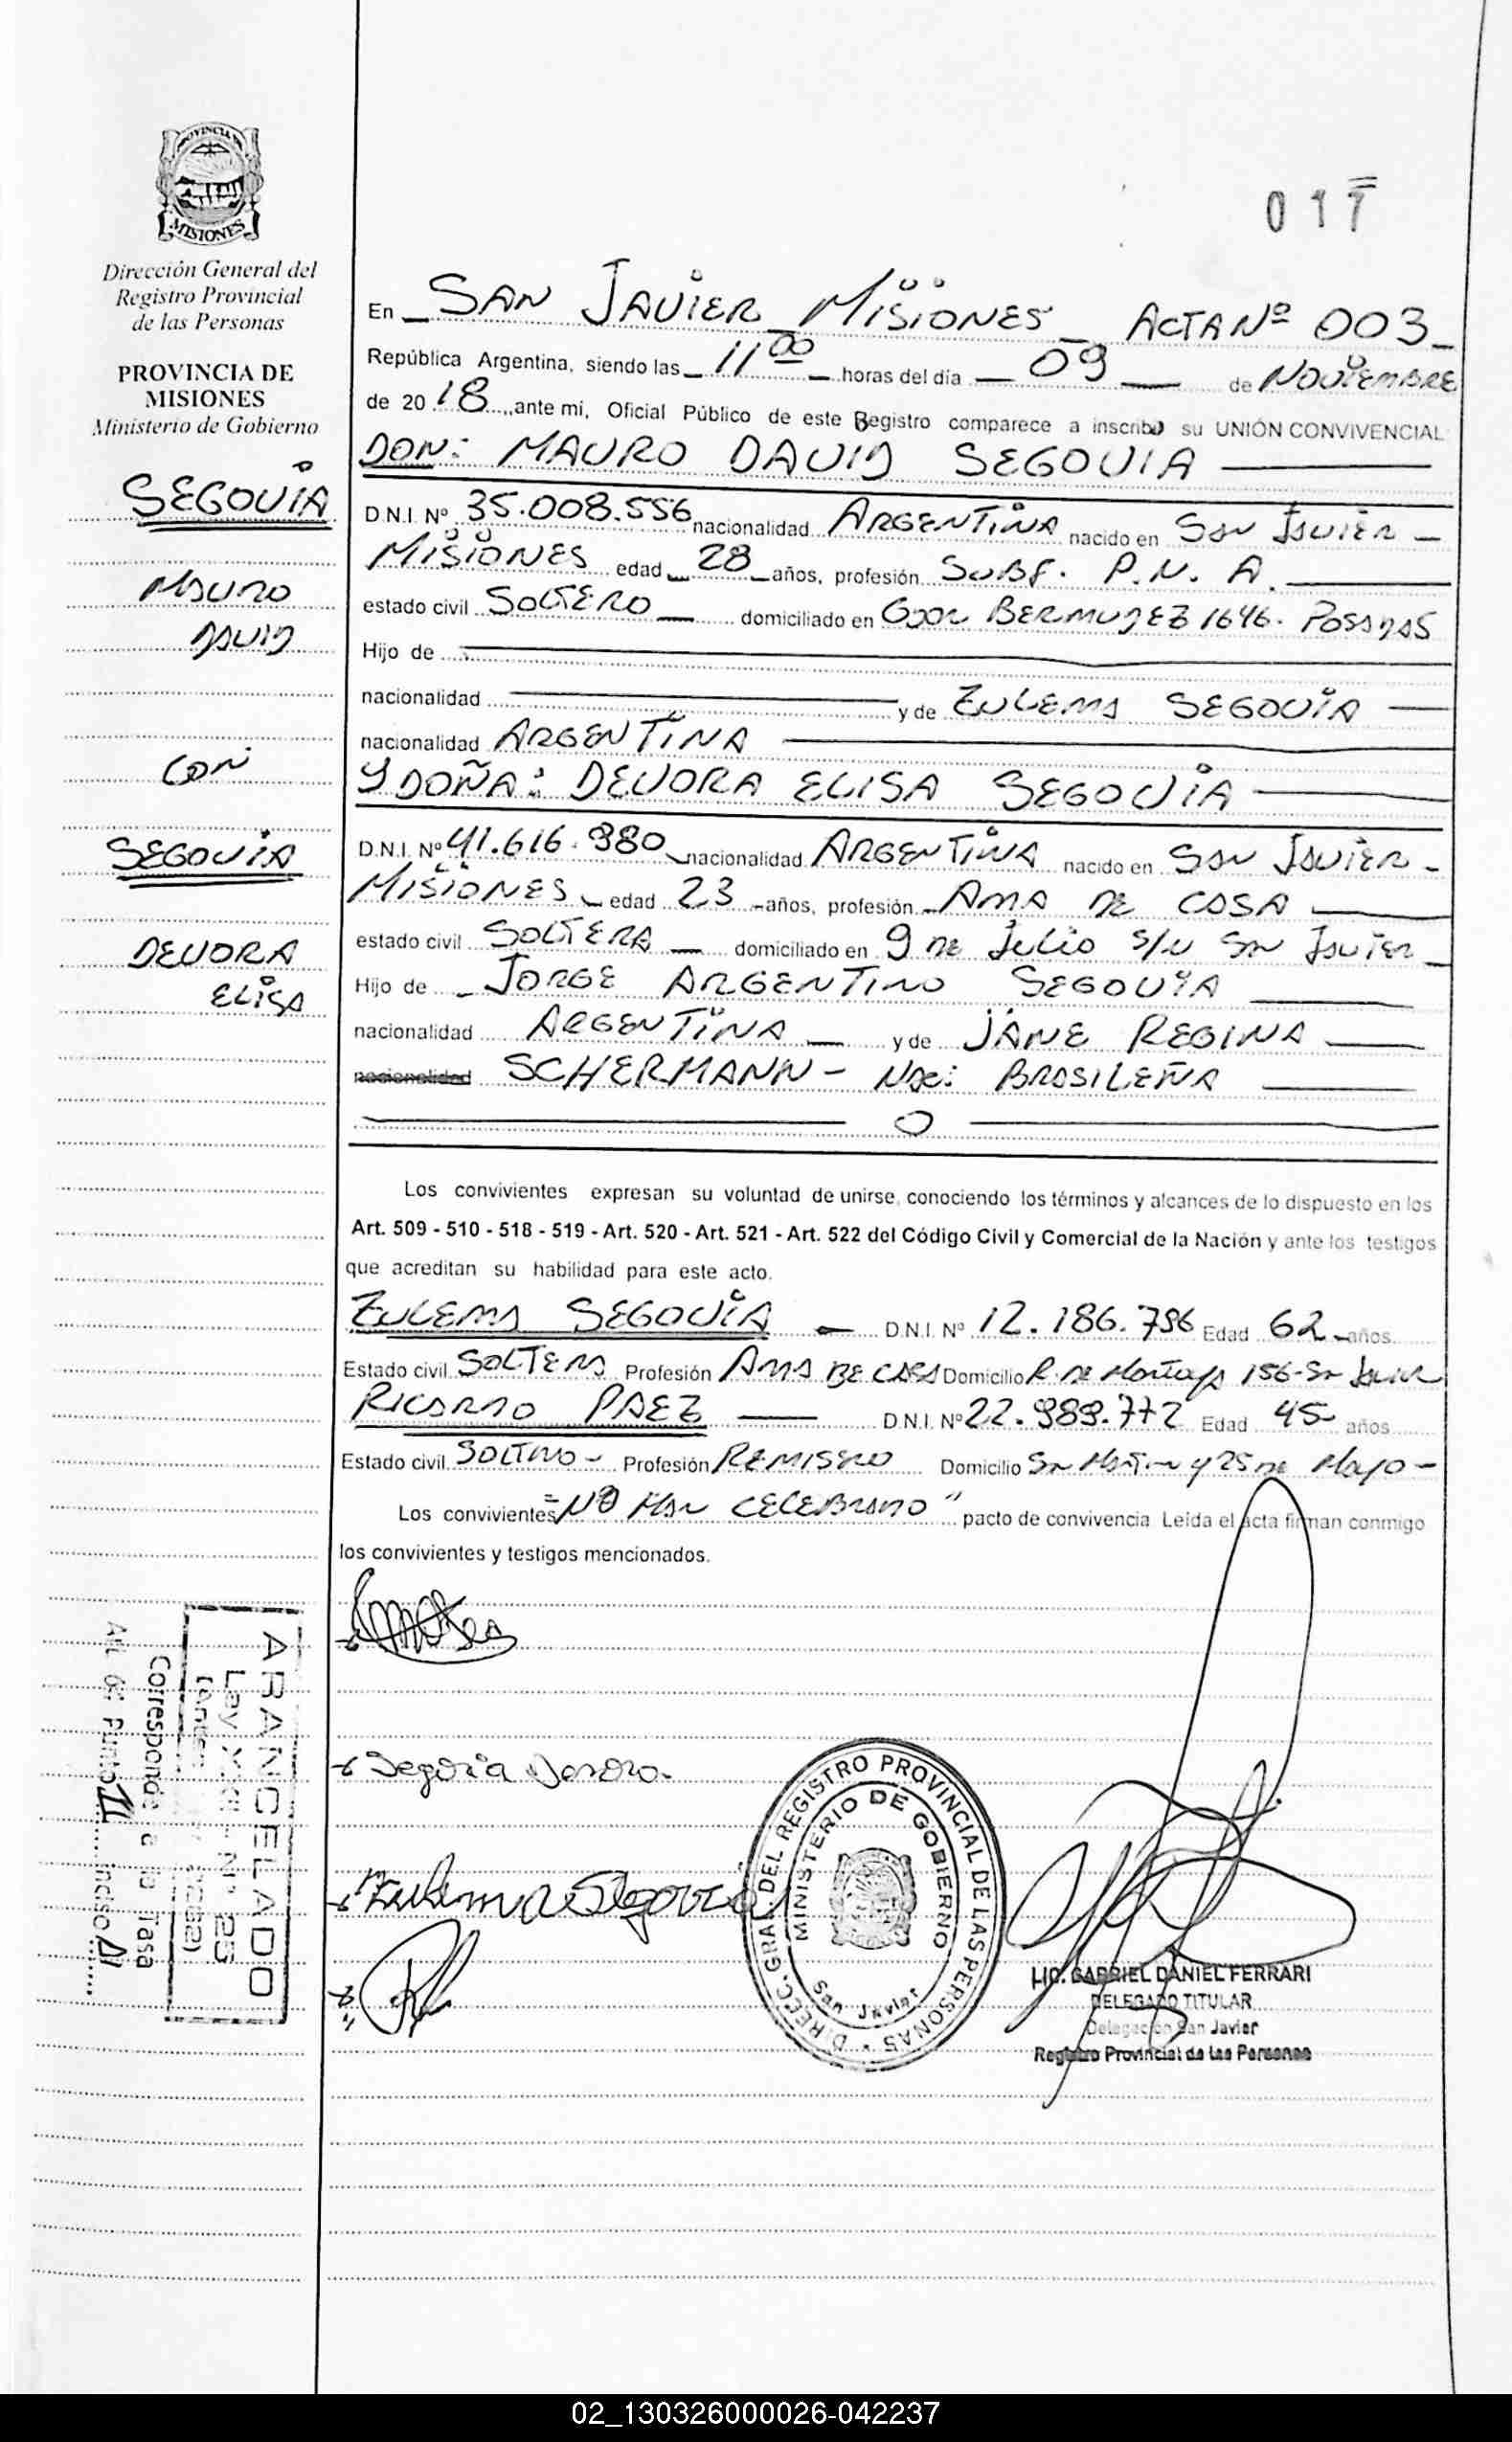 PROVINCIA DE
MISIONES
Dirección General del
Registro Provincial
de las Personas
PROVINCIA DE
MISIONES
Ministerio de Gobierno
SEGOVIA
MAURO
DAVID
CON
SEGOVIA
DEVORA
ELISA
017
En SAN JAVIER MISIONES ACTA Nº 003
República Argentina, siendo las 11 00 horas del día 09 de NOVIEMBRE
de 20 18 ante mi, Oficial Público de este Registro comparece a inscribir su UNIÓN CONVIVENCIAL
DON: MAURO DAVID SEGOVIA
D.N.I. Nº 35.008.556 nacionalidad ARGENTINA nacido en SAN JAVIER
MISIONES edad 28 años, profesión SUBF. P.N.A.
estado civil SOLTERO domiciliado en GDOR BERMUDEZ 1646. POSADAS
Hijo de
nacionalidad y de ZULEMA SEGOVIA
nacionalidad ARGENTINA
Y DOÑA: DEVORA ELISA SEGOVIA
D.N.I. Nº 41.616.980 nacionalidad ARGENTINA nacido en SAN JAVIER
MISIONES edad 23 años, profesión AMA DE CASA
estado civil SOLTERA domiciliado en 9 DE JULIO S/N SAN JAVIER
Hijo de JORGE ARGENTINO SEGOVIA
nacionalidad ARGENTINA y de JANE REGINA
nacionalidad SCHERMANN - NAC: BRASILEÑA
Los convivientes expresan su voluntad de unirse, conociendo los términos y alcances de lo dispuesto en los
Art. 509 - 510 - 518 - 519 - Art. 520 - Art. 521 - Art. 522 del Código Civil y Comercial de la Nación y ante los testigos
que acreditan su habilidad para este acto.
ZULEMA SEGOVIA D.N.I. Nº 12.186.796 Edad 62 años
Estado civil SOLTERA Profesión AMA DE CASA Domicilio R. DE Montoya 156-San Javier
RICARDO PAEZ D.N.I. Nº 22.989.772 Edad 45 años
Estado civil SOLTERO Profesión REMISERO Domicilio San Martin y 25 DE Mayo
Los convivientes "NO HAN CELEBRADO" pacto de convivencia Leída el acta firman conmigo
los convivientes y testigos mencionados.
Segovia Devora
Zulema Segovia
DIREC. GRAL. DEL REGISTRO PROVINCIAL DE LAS PERSONAS
MINISTERIO DE GOBIERNO
San Javier
LIC. GABRIEL DANIEL FERRARI
DELEGADO TITULAR
Delegación San Javier
Registro Provincial de las Personas
ARANCELADO
Ley Nº 25
Corresponde a la Tasa
Art. 6º Punto II inciso A
02_130326000026-042237